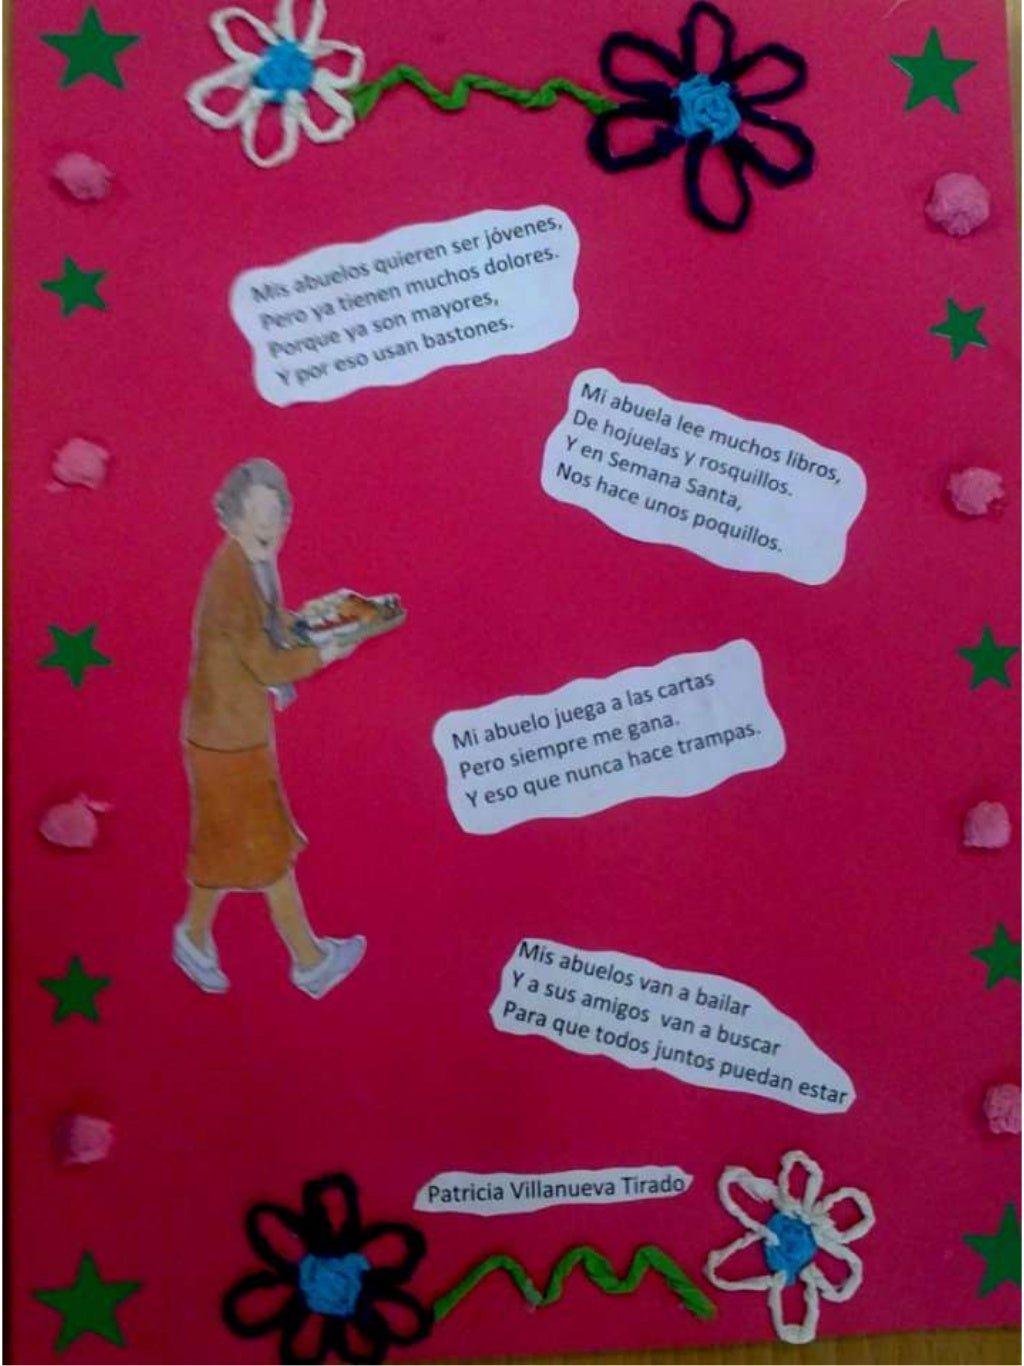 Mis abuelos quieren ser jóvenes,
Pero ya tienen muchos dolores.
Porque ya son mayores,
Y por eso usan bastones.
Mi abuela lee muchos libros,
De hojuelas y rosquillos.
Y en Semana Santa,
Nos hace unos poquillos.
Mi abuelo juega a las cartas
Pero siempre me gana.
Y eso que nunca hace trampas.
Mis abuelos van a bailar
Y a sus amigos van a buscar
Para que todos juntos puedan estar
Patricia Villanueva Tirado